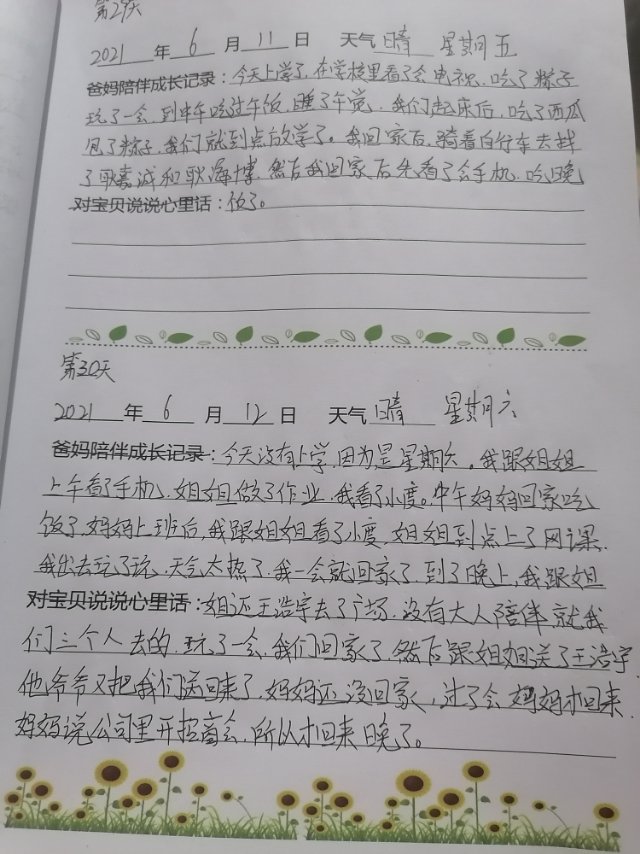 第29天
2021 年 6 月 11 日 天气 晴 星期五
爸妈陪伴成长记录：今天上学了，在学校里看了会电视，吃了粽子
玩了一会，到中午吃过午饭，睡了午觉，我们起床后，吃了西瓜
包了粽子，我们就到点放学了。我回家后，骑着自行车去找
了耿嘉诚和耿海博，然后我回家后先看了会手机，吃晚
对宝贝说说心里话：饭了。
第30天
2021 年 6 月 12 日 天气 晴 星期六
爸妈陪伴成长记录：今天没有上学，因为是星期六。我跟姐姐
上午看了手机，姐姐做了作业，我看了小度。中午妈妈回家吃
饭了，妈妈上班后，我跟姐姐看了小度，姐姐到点上了网课，
我出去玩了玩，天气太热了，我一会就回家了，到了晚上，我跟姐
对宝贝说说心里话：姐还王浩宇去了广场，没有大人陪伴，就我
们三个人去的，玩了一会，我们回家了，然后跟姐姐送了王浩宇，
他爷爷又把我们送回来了，妈妈还没回家，过了会妈妈才回来，
妈妈说公司里开招商会，所以才回来晚了。